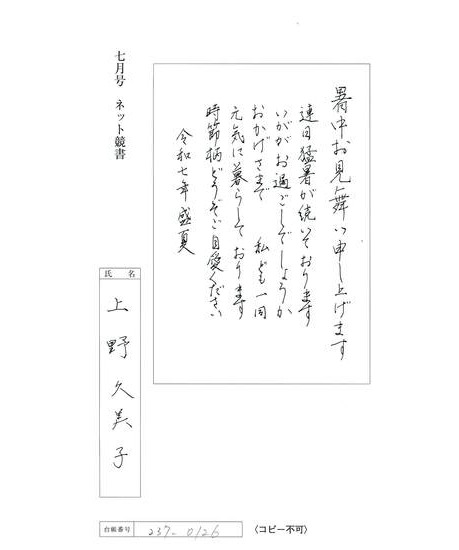 七月号 ネット競書
暑中お見舞い申し上げます
連日猛暑が続いております
いかがお過ごしでしょうか
おかげさまで 私ども一同
元気に暮らしております
時節柄どうぞご自愛ください
令和七年盛夏
氏名
上野久美子
台帳番号
237-0126
〈コピー不可〉